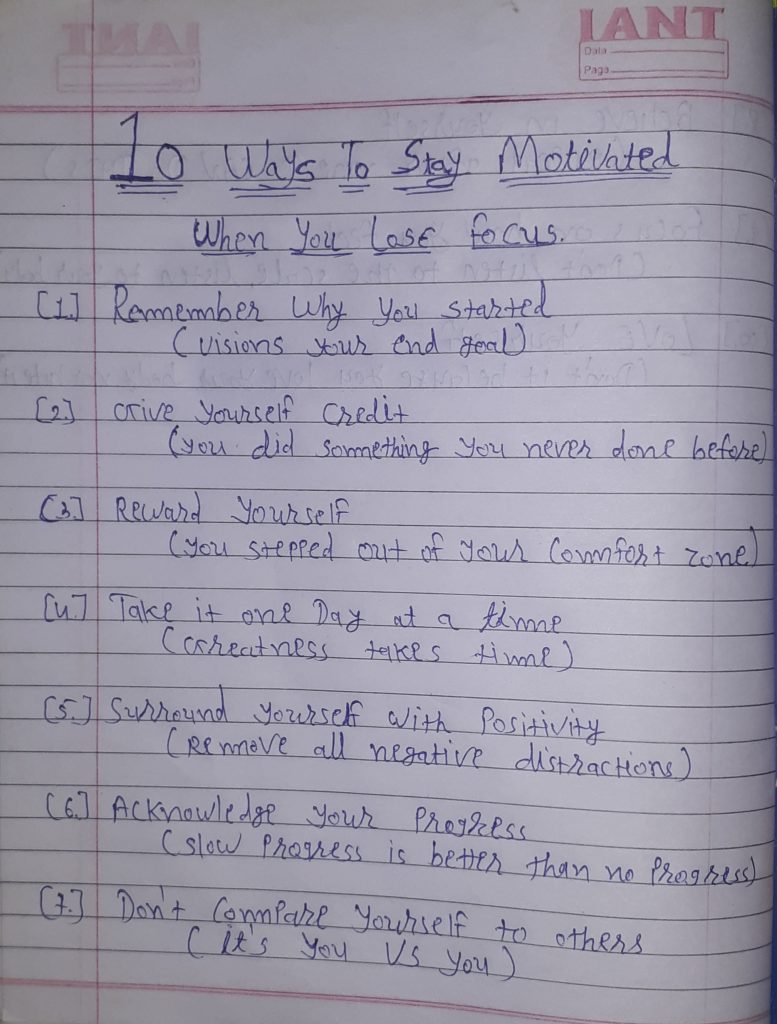 IANT
Date
Page
10 Ways To Stay Motivated
When You Lose focus.
[1] Remember Why You started
(visions your End goal)
[2.] Give Yourself Credit
(you did something you never done before)
[3.] Reward Yourself
(you stepped out of your Comfort zone)
[4] Take it one Day at a time
(Greatness takes time)
[5.] Surround yourself with Positivity
(Remove all negative distractions)
[6.] Acknowledge your Progress
(slow Progress is better than no Progress)
[7.] Don't Compare Yourself to others
(it's You Vs You)